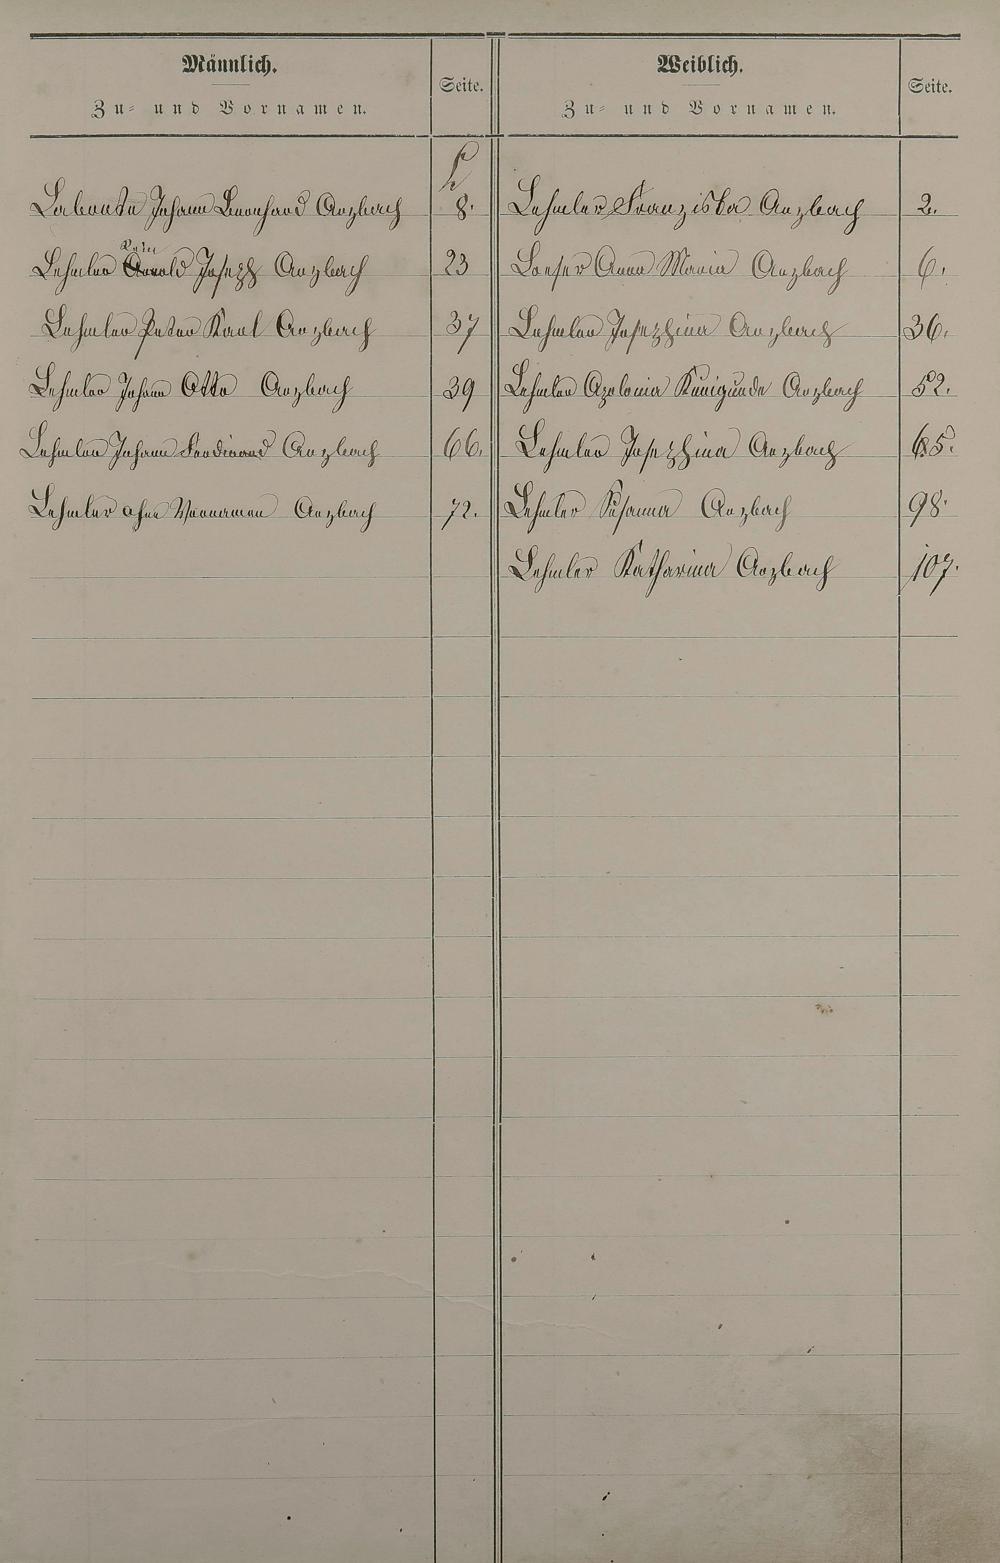 Männlich.
Zu- und Vornamen.
Seite.
Weiblich.
Zu- und Vornamen.
Seite.
L
Labonte Johann Bernhard Arzbach 8.
Lehmler Franziska Arzbach 2.
Lehmler Joseph Arzbach 23
Loeser Anna Maria Arzbach 6.
Lehmler Peter Karl Arzbach 37
Lehmler Josephina Arzbach 36.
Lehmler Johann Otto Arzbach 39
Lehmler Apolonia Kunigunde Arzbach 52.
Lehmler Johann Ferdinand Arzbach 66.
Lehmler Josephina Arzbach 65.
Lehmler ohne Vornamen Arzbach 72.
Lehmler Susanna Arzbach 98.
Lehmler Katharina Arzbach 107.